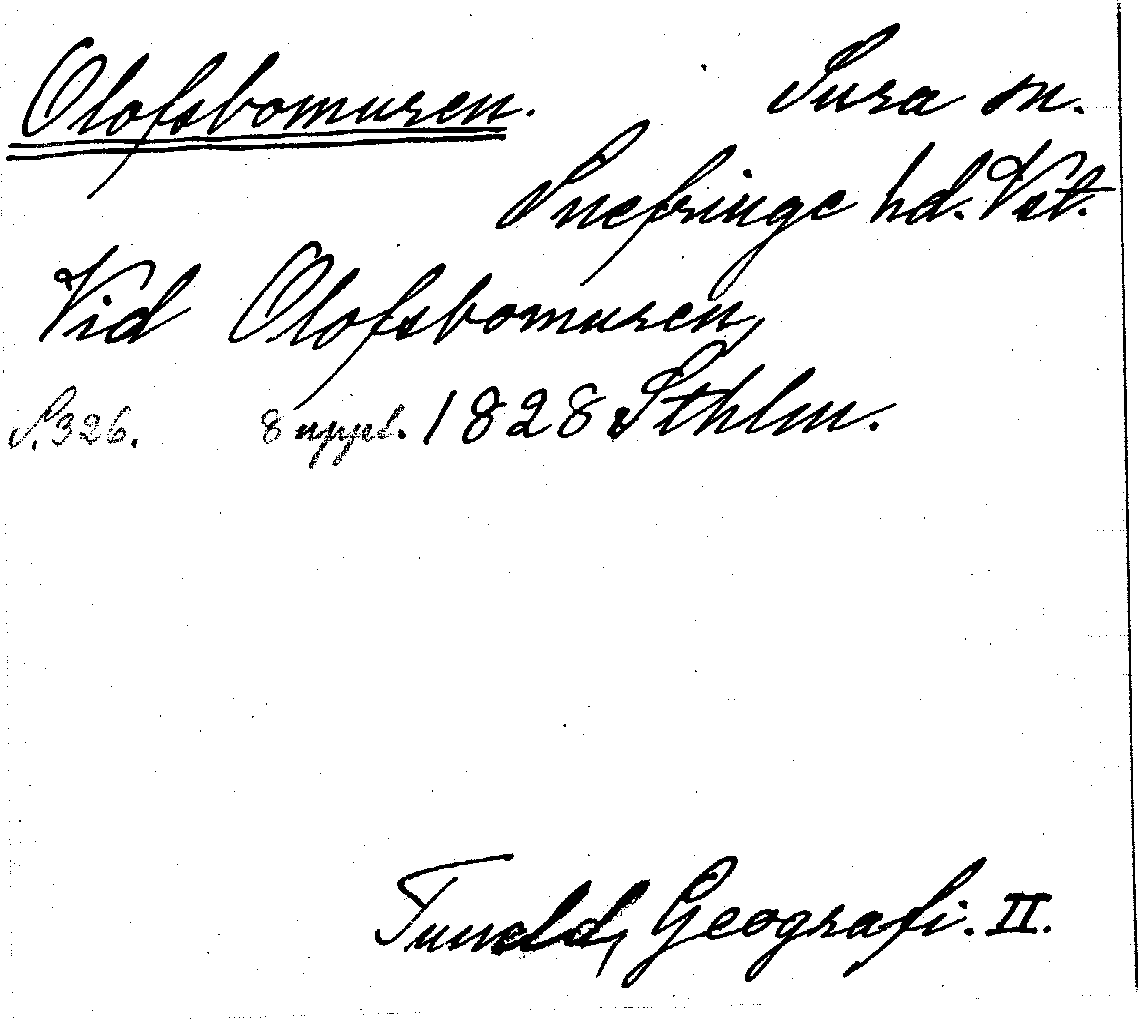 Olofsbomuren. Sura sn.
Snefringe hd. Vst.
Vid Olofsbomuren,
S. 326. 8 uppl. 1828 Sthlm.
Tuneld, Geografi. II.